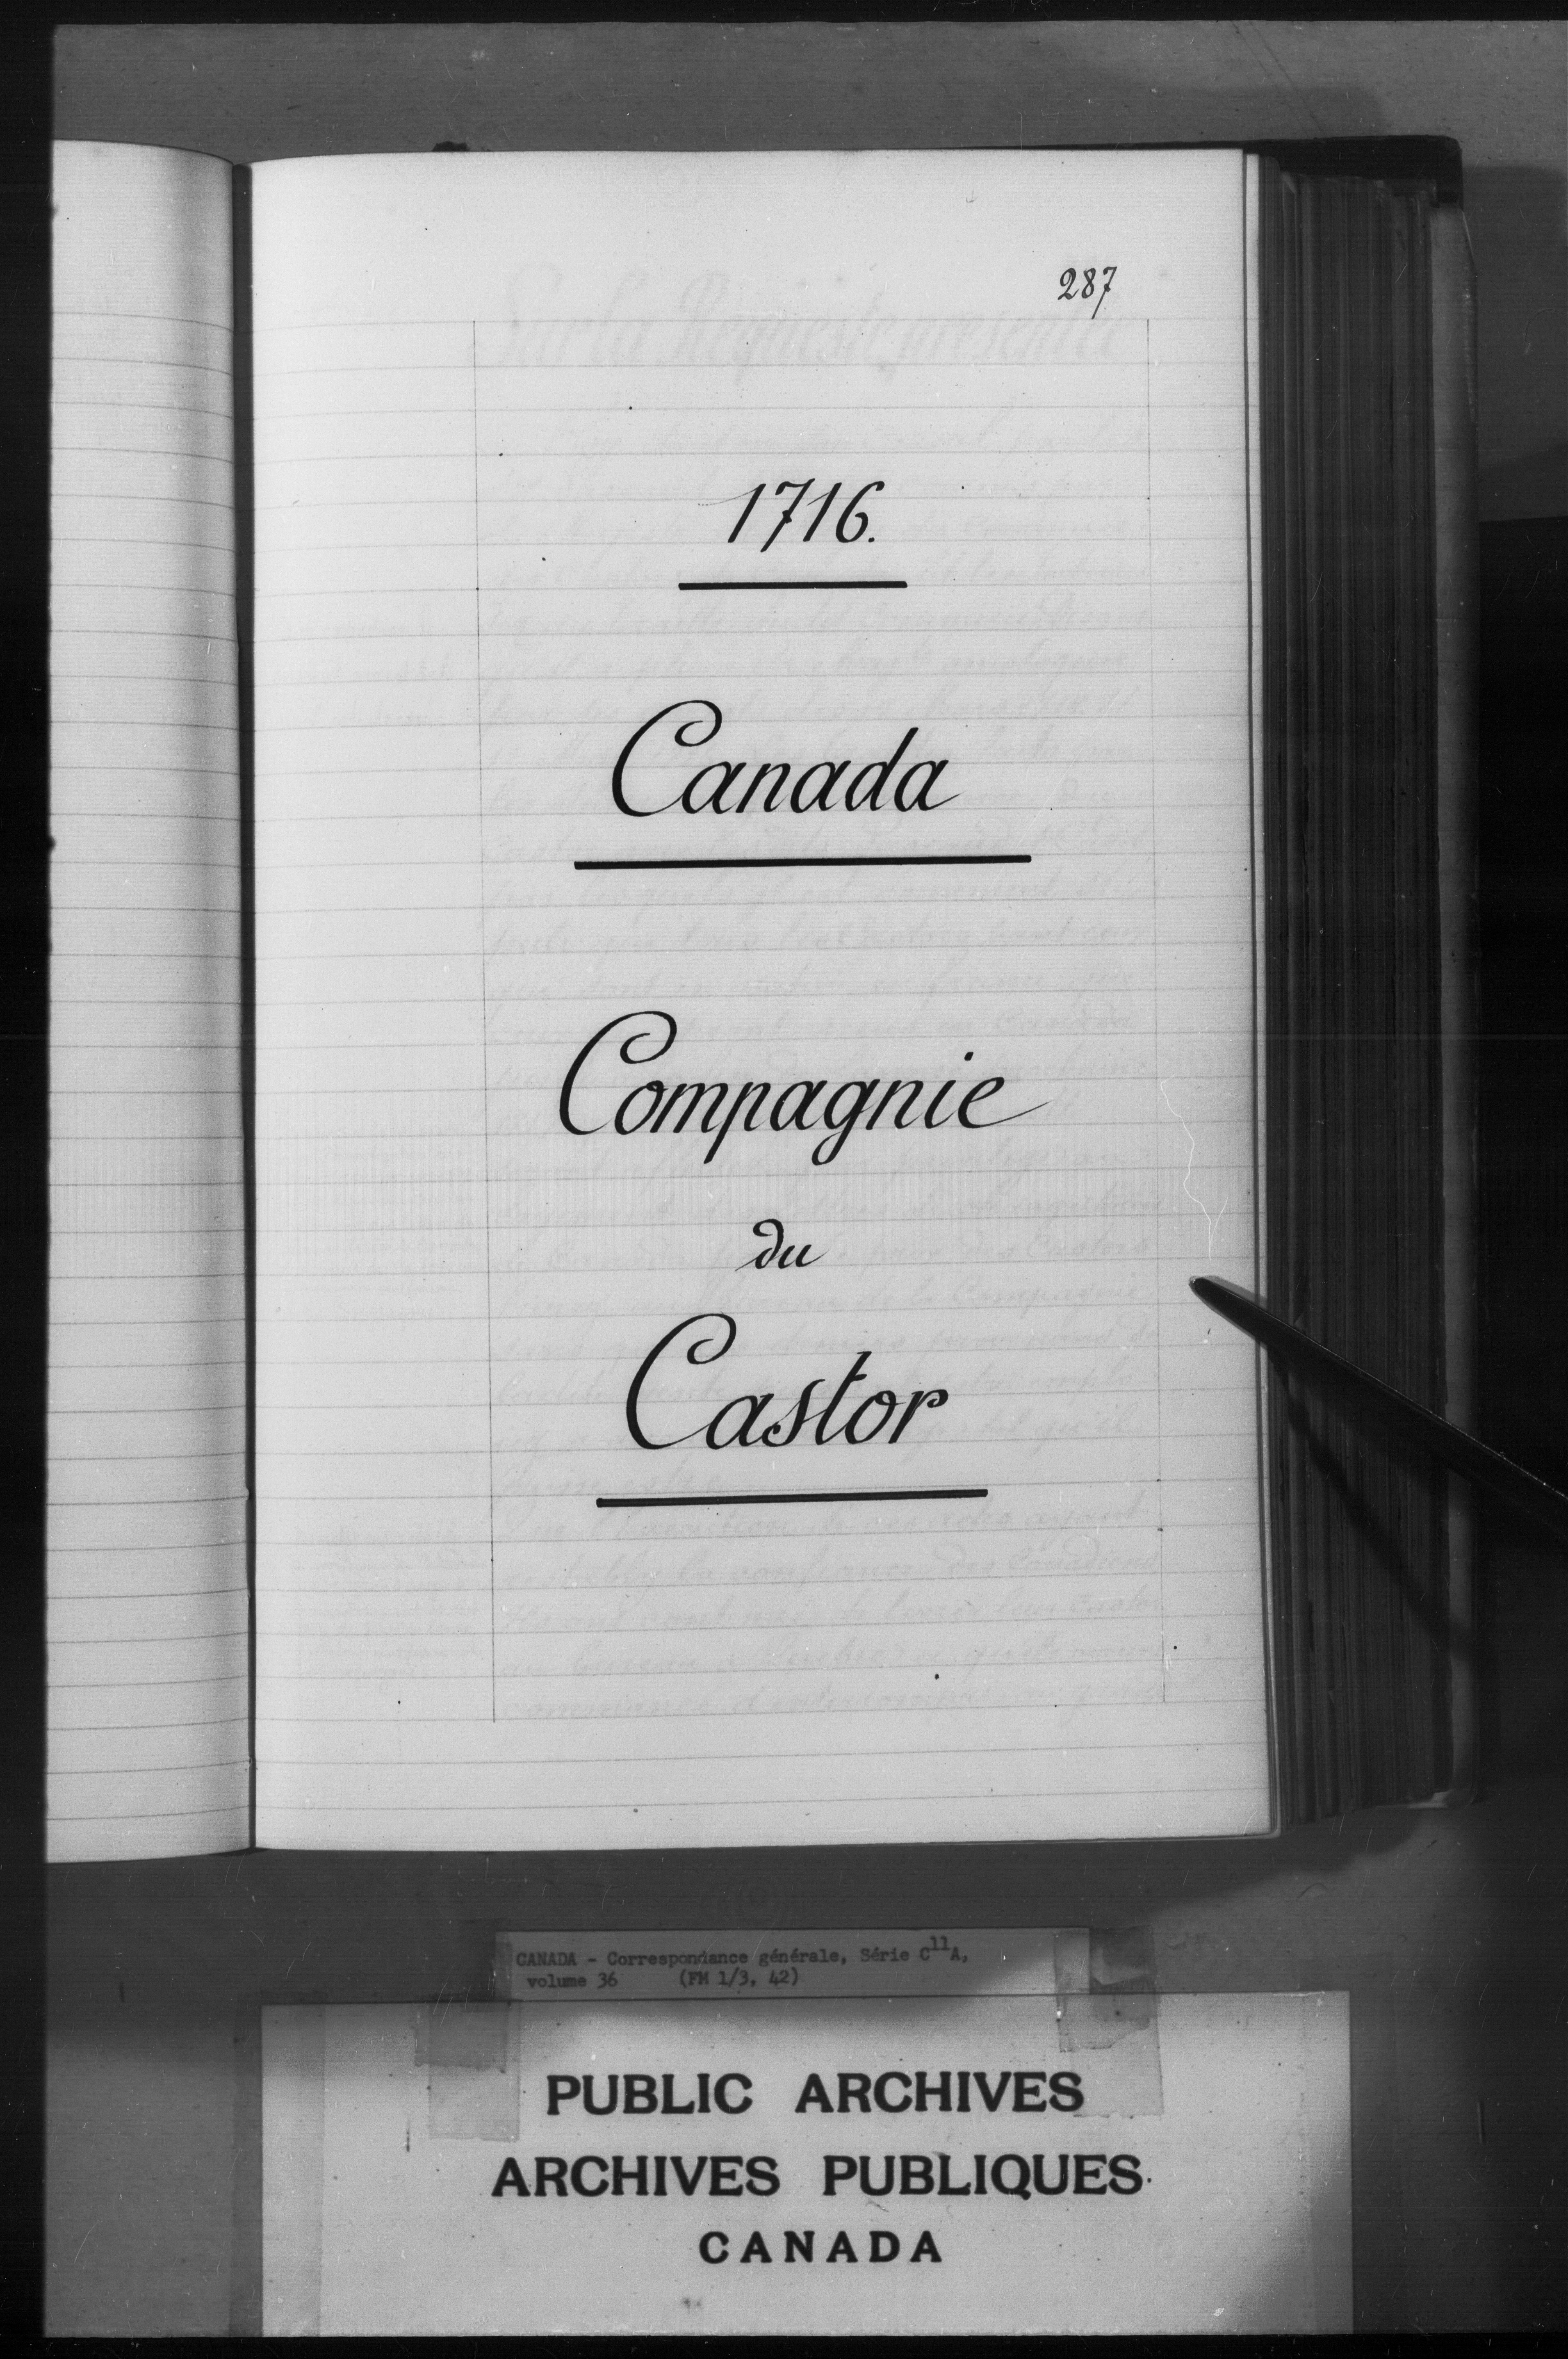 287
1716.
Canada
Compagnie
du
Castor
CANADA - Correspondance générale, Série C11A,
volume 36 (FM 1/3, 42)
PUBLIC ARCHIVES
ARCHIVES PUBLIQUES
CANADA